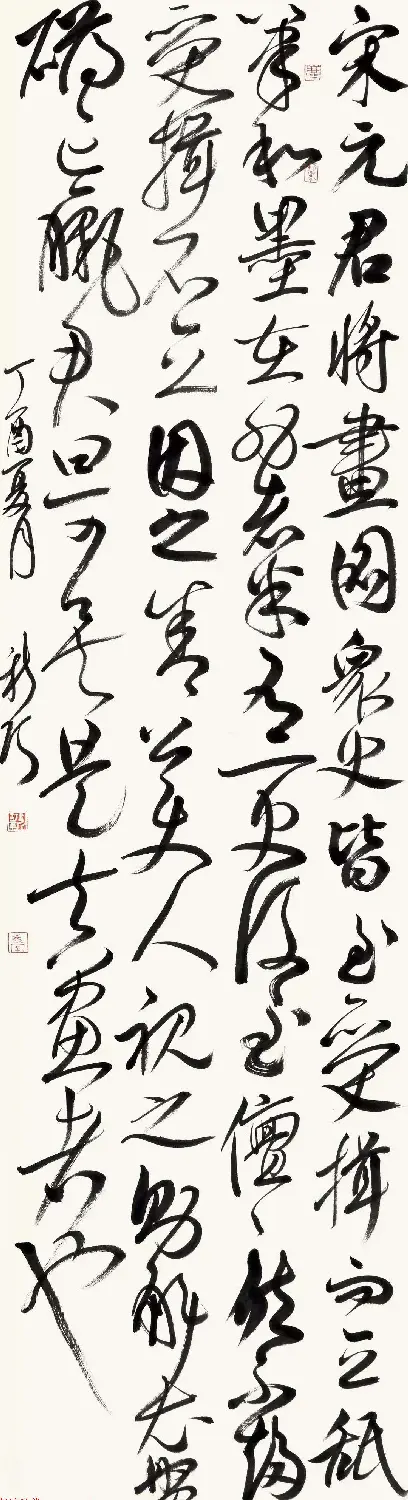 宋元君將畫圖眾史皆至受揖而立舐
筆和墨在外者半有一史後至儃〻然不趨
受揖不立因之舍公使人視之則解衣般
礴臝君曰可矣是真畫者也
丁酉夏月